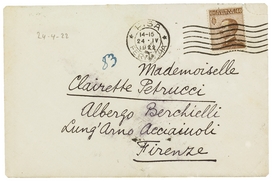 24-4-22
PISA
14-15
24·IV
1922
83
Mademoiselle
Clairette Petrucci
Albergo Berchielli
Lung'Arno Acciaiuoli
Firenze